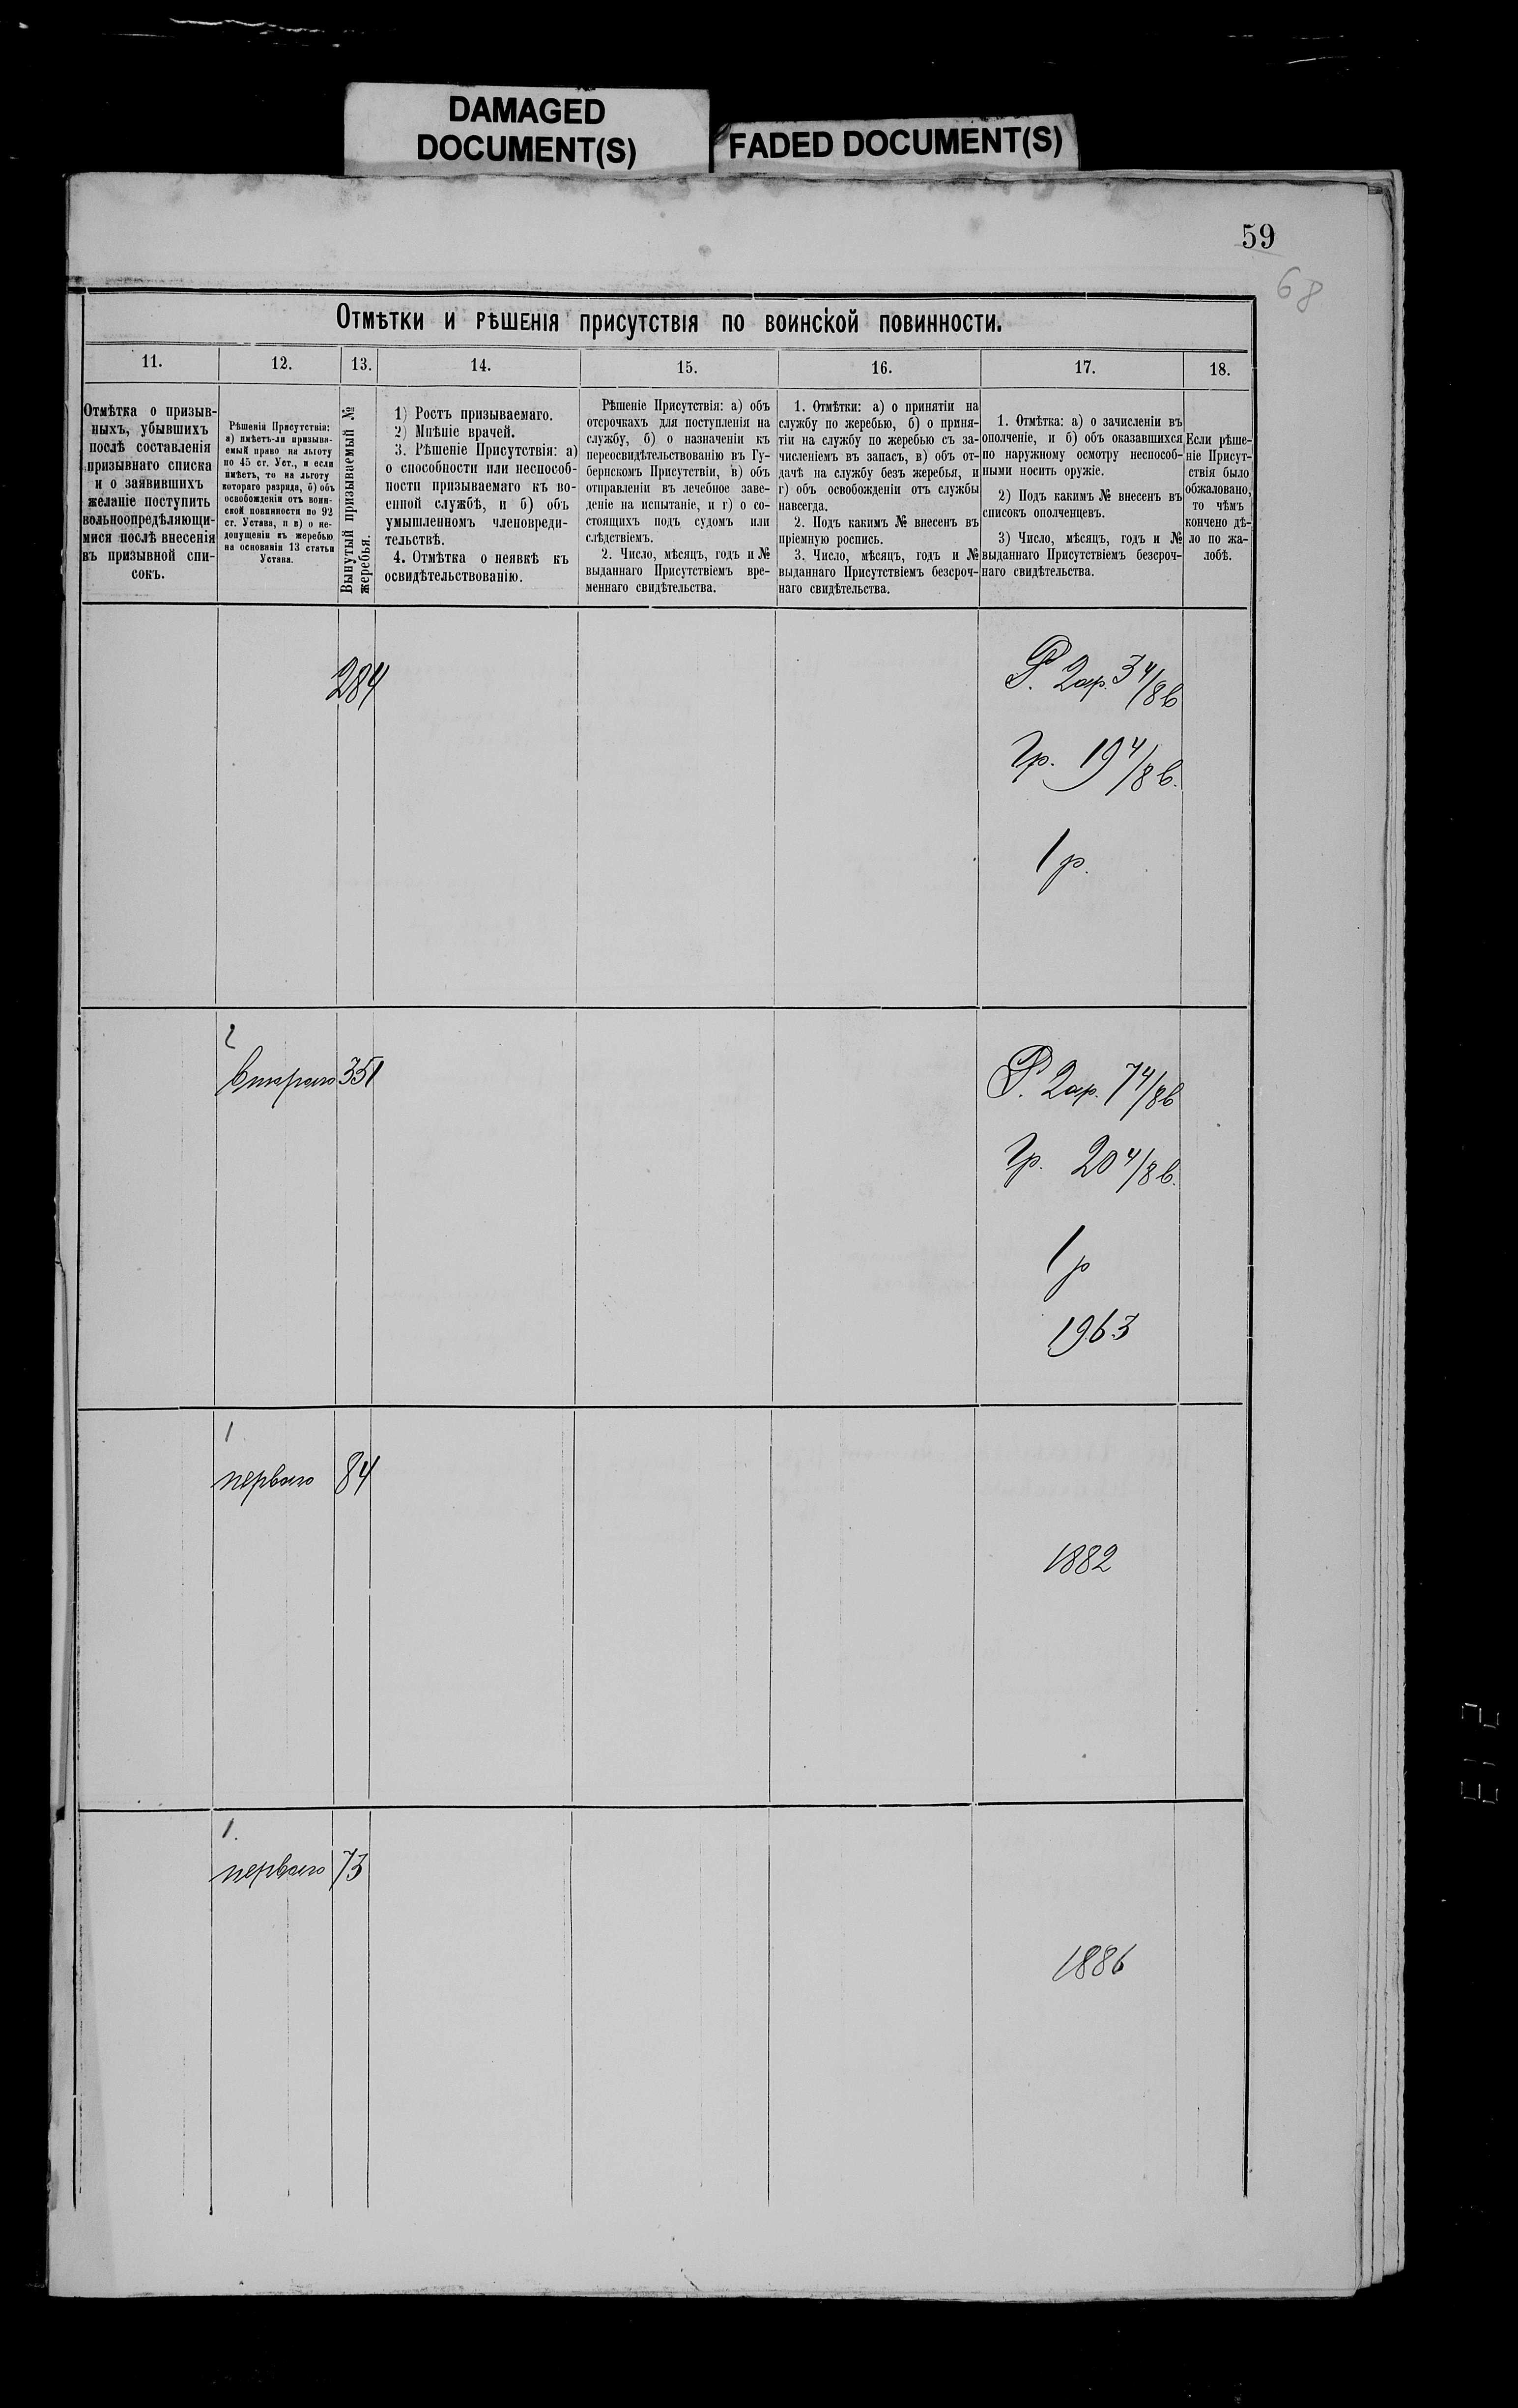 DAMAGED
DOCUMENT(S)
FADED DOCUMENT(S)
59
68
Отмѣтки и рѣшенія присутствія по воинской повинности.
11.
12.
13.
14.
15.
16.
17.
18.
Отмѣтка о призыв-
ныхъ, убывшихъ
послѣ составленія
призывнаго списка
и о заявившихъ
желаніе поступить
вольноопредѣляющи-
мися послѣ внесенія
въ призывной спи-
сокъ.
Рѣшенія Присутствія:
а) имѣетъ-ли призыва-
емый право на льготу
по 45 ст. Уст., и если
имѣетъ, то на льготу
котораго разряда, б) объ
освобожденіи отъ воин-
ской повинности по 92
ст. Устава, и в) о не-
допущеніи къ жеребью
на основаніи 13 статьи
Устава.
Вынутый призываемый №
жеребья.
1) Ростъ призываемаго.
2) Мнѣніе врачей.
3. Рѣшеніе Присутствія: а)
о способности или неспособ-
ности призываемаго къ во-
енной службѣ, и б) объ
умышленномъ членовреди-
тельствѣ.
4. Отмѣтка о неявкѣ къ
освидѣтельствованію.
Рѣшеніе Присутствія: а) объ
отсрочкахъ для поступленія на
службу, б) о назначеніи къ
переосвидѣтельствованію въ Гу-
бернскомъ Присутствіи, в) объ
отправленіи въ лечебное заве-
деніе на испытаніе, и г) о со-
стоящихъ подъ судомъ или
слѣдствіемъ.
2. Число, мѣсяцъ, годъ и №
выданнаго Присутствіемъ вре-
меннаго свидѣтельства.
1. Отмѣтки: а) о принятіи на
службу по жеребью, б) о приня-
тіи на службу по жеребью съ за-
численіемъ въ запасъ, в) объ от-
дачѣ на службу безъ жеребья, и
г) объ освобожденіи отъ службы
навсегда.
2. Подъ какимъ № внесенъ въ
пріемную роспись.
3. Число, мѣсяцъ, годъ и №
выданнаго Присутствіемъ безсроч-
наго свидѣтельства.
1. Отмѣтка: а) о зачисленіи въ
ополченіе, и б) объ оказавшихся
по наружному осмотру неспособ-
ными носить оружіе.
2) Подъ какимъ № внесенъ въ
списокъ ополченцевъ.
3) Число, мѣсяцъ, годъ и №
выданнаго Присутствіемъ безсроч-
наго свидѣтельства.
Если рѣше-
ніе Присут-
ствія было
обжаловано,
то чѣмъ
кончено дѣ-
ло по жа-
лобѣ.
284
Р. 2ар. 3 4/8 в
Гр. 19 4/8 в.
1 р.
2
втораго
351
Р. 2ар. 7 4/8 в
Гр. 20 4/8 в.
1 р
1963
1
перваго
84
1882
1.
перваго
73
1886